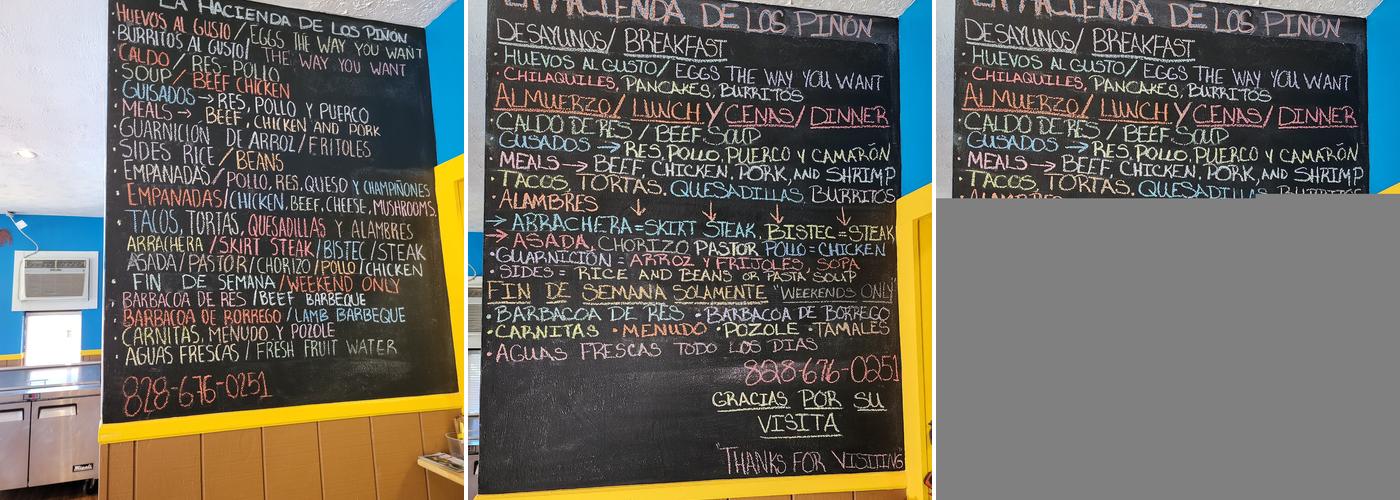 LA HACIENDA DE LOS PIÑON
HUEVOS AL GUSTO / EGGS THE WAY YOU WANT
BURRITOS AL GUSTO / THE WAY YOU WANT
CALDO / RES - POLLO
SOUP / BEEF CHICKEN
GUISADOS → RES, POLLO Y PUERCO
MEALS → BEEF, CHICKEN AND PORK
GUARNICION DE ARROZ / FRIJOLES
SIDES RICE / BEANS
EMPANADAS / POLLO, RES, QUESO Y CHAMPIÑONES
EMPANADAS / CHICKEN, BEEF, CHEESE, MUSHROOMS
TACOS, TORTAS, QUESADILLAS Y ALAMBRES
ARRACHERA / SKIRT STEAK / BISTEC / STEAK
ASADA / PASTOR / CHORIZO / POLLO / CHICKEN
FIN DE SEMANA / WEEKEND ONLY
BARBACOA DE RES / BEEF BARBEQUE
BARBACOA DE BORREGO / LAMB BARBEQUE
CARNITAS, MENUDO Y POZOLE
AGUAS FRESCAS / FRESH FRUIT WATER
828-676-0251
LA HACIENDA DE LOS PIÑÓN
DESAYUNOS / BREAKFAST
·HUEVOS AL GUSTO / EGGS THE WAY YOU WANT
·CHILAQUILES, PANCAKES, BURRITOS
ALMUERZO / LUNCH Y CENAS / DINNER
CALDO DE RES / BEEF SOUP
·GUSADOS → RES, POLLO, PUERCO Y CAMARÓN
·MEALS → BEEF, CHICKEN, PORK, AND SHRIMP
·TACOS, TORTAS, QUESADILLAS, BURRITOS
·ALAMBRES ↓ ↓ ↓ ↓
→ ARRACHERA = SKIRT STEAK, BISTEC = STEAK
→ ASADA, CHORIZO, PASTOR POLLO = CHICKEN
·GUARNICIÓN = ARROZ Y FRIJOLES, SOPA
·SIDES = RICE AND BEANS OR PASTA SOUP
FIN DE SEMANA SOLAMENTE "WEEKENDS ONLY"
·BARBACOA DE RES ·BARBACOA DE BORREGO
·CARNITAS ·MENUDO ·POZOLE ·TAMALES
·AGUAS FRESCAS TODO LOS DIAS
828-676-0251
GRACIAS POR SU
VISITA
"THANKS FOR VISITING"
LA HACIENDA DE LOS PIÑÓN
DESAYUNOS / BREAKFAST
·HUEVOS AL GUSTO / EGGS THE WAY YOU WANT
·CHILAQUILES, PANCAKES, BURRITOS
ALMUERZO / LUNCH Y CENAS / DINNER
CALDO DE RES / BEEF SOUP
·GUSADOS → RES, POLLO, PUERCO Y CAMARÓN
·MEALS → BEEF, CHICKEN, PORK, AND SHRIMP
·TACOS, TORTAS, QUESADILLAS BURRITOS
·ALAMBRES